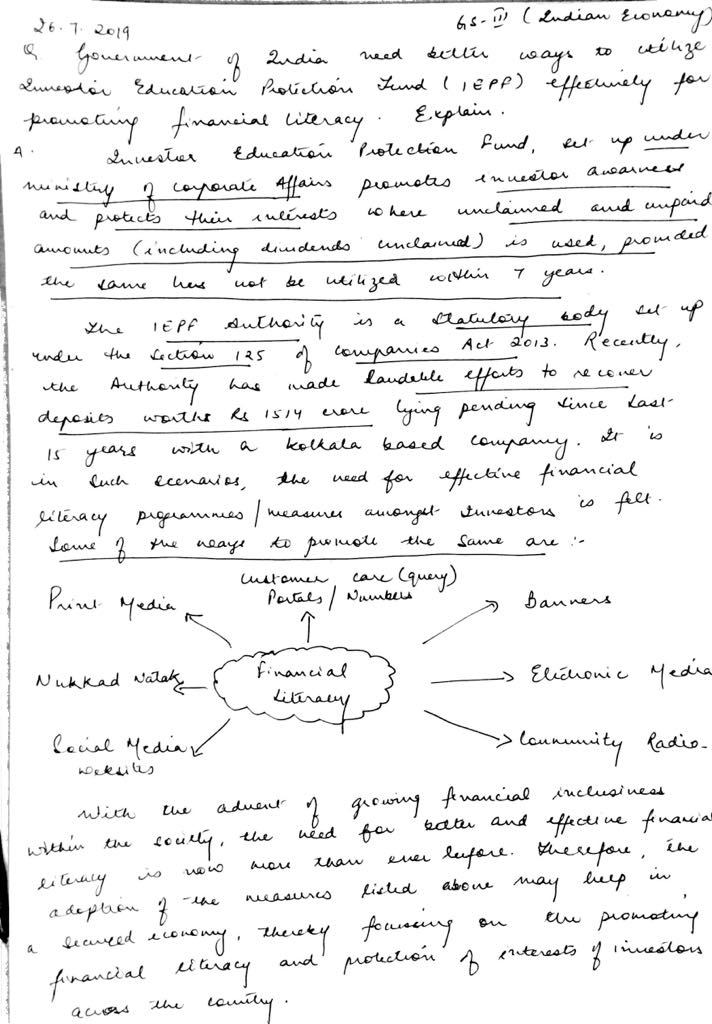 26.7.2019
GS-III (Indian Economy)
Q. Government of India need better ways to utilize
Investor Education Protection Fund (IEPF) effectively for
promoting financial literacy. Explain.
A. Investor Education Protection Fund, set up under
ministry of corporate Affairs promotes investor awareness
and protects their interests where unclaimed and unpaid
amounts (including dividends unclaimed) is used, provided
the same has not be utilized within 7 years.
The IEPF Authority is a Statutory body set up
under the Section 125 of Companies Act 2013. Recently,
the Authority has made laudable efforts to recover
deposits worths Rs 1514 crore lying pending since last
15 years with a Kolkata based company. It is
in such scenarios, the need for effective financial
literacy programmes/measures amongst Investors is felt.
Some of the ways to promote the same are :-
Customer care (query)
Portals/Numbers
Print Media
Banners
Financial
Literacy
Nukkad Natak
Electronic Media
Social Media
websites
Community Radio
With the advent of growing financial inclusiness
within the society, the need for better and effective financial
literacy is now more than ever before. Therefore, the
adoption of the measures listed above may help in
a secured economy, thereby focussing on the promoting
financial literacy and protection of interests of investors
across the country.